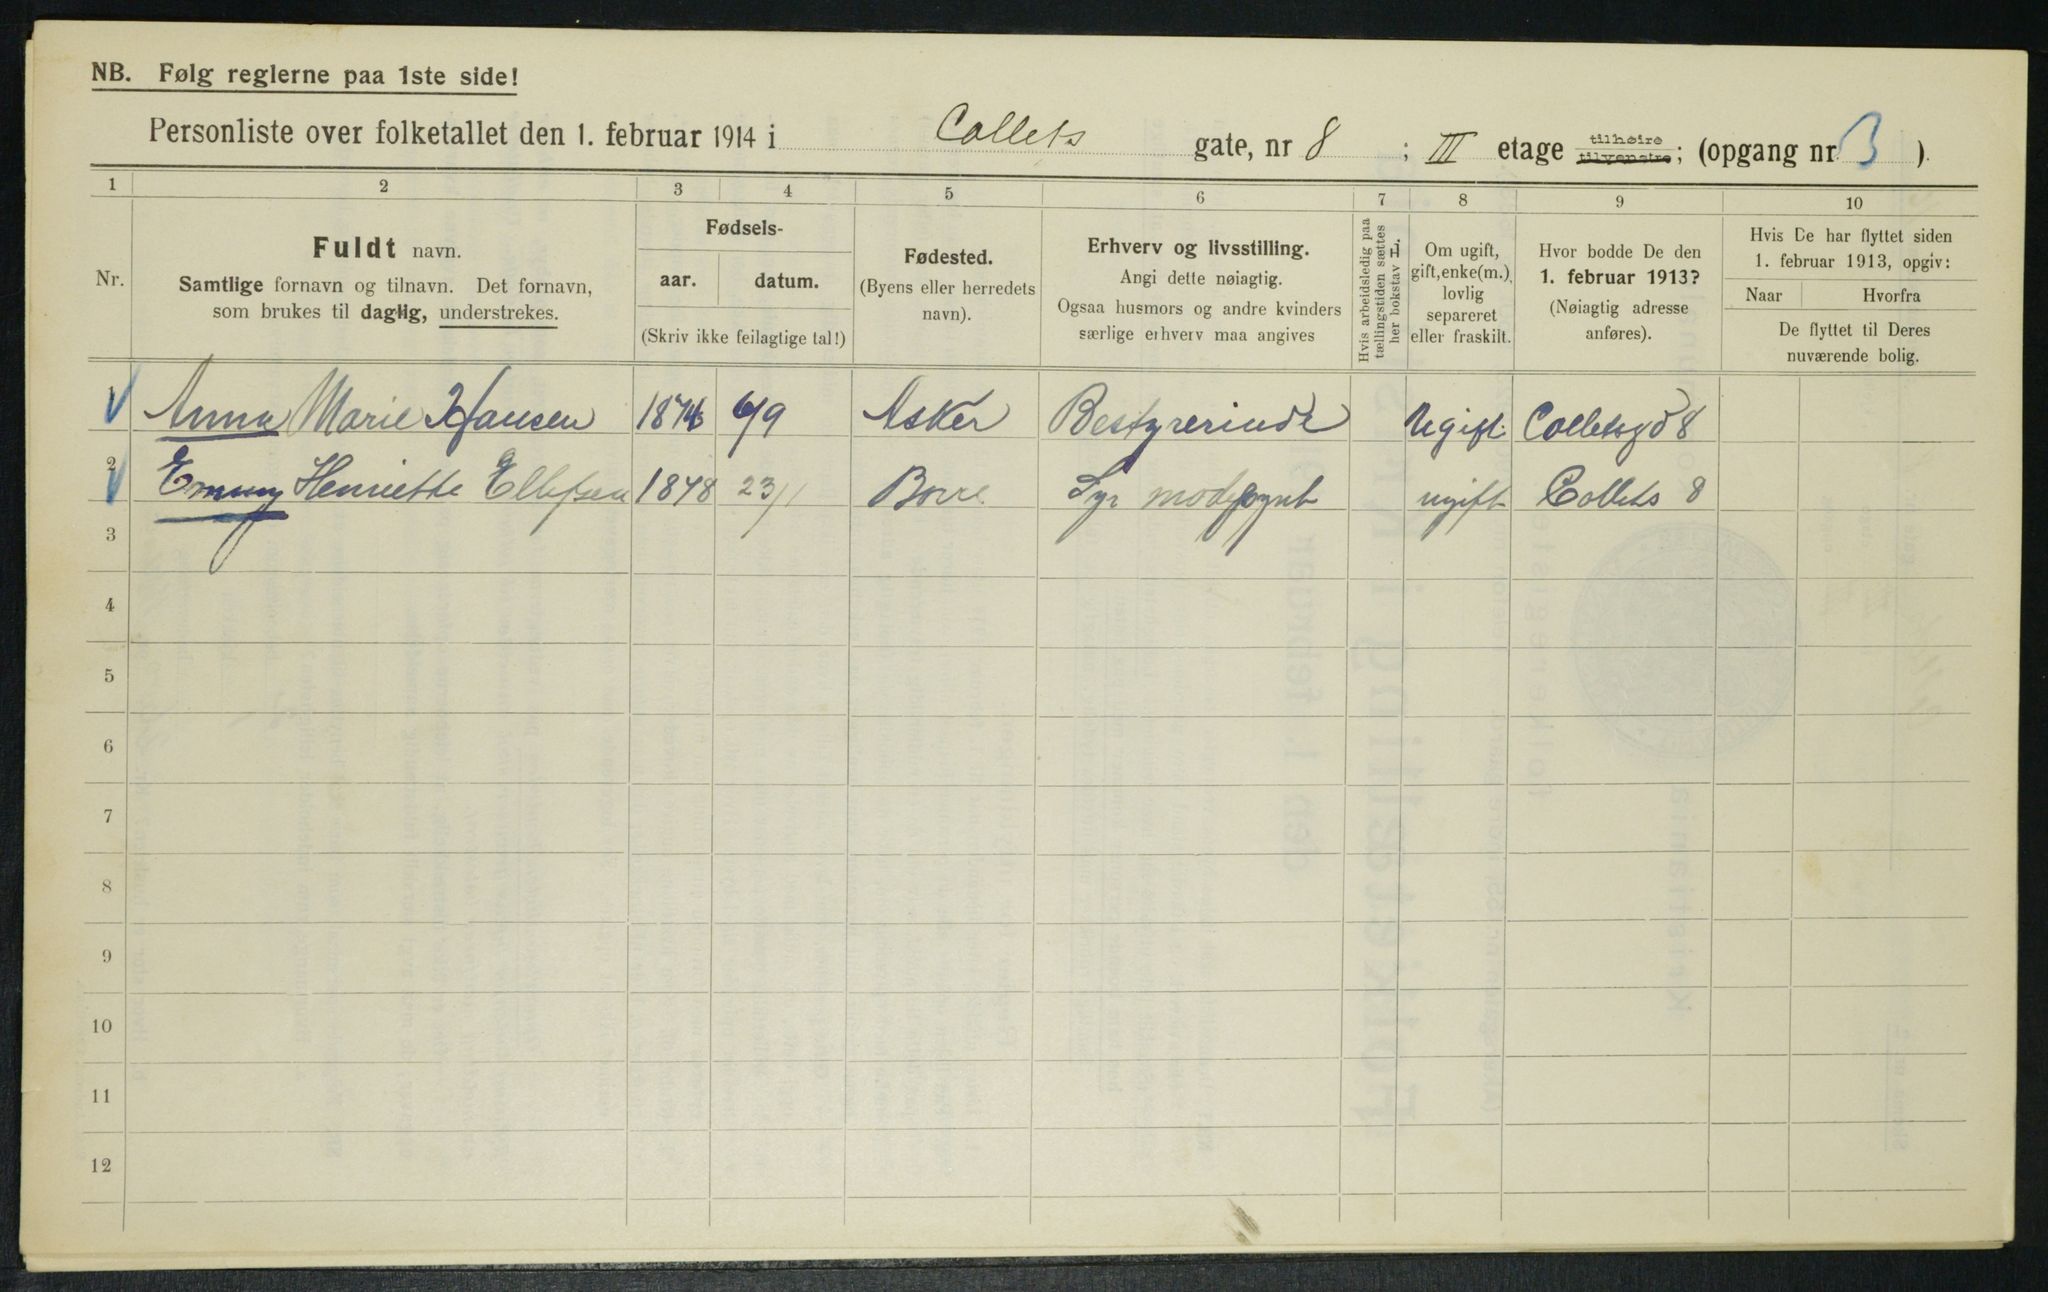 NB. Følg reglerne paa 1ste side!
Personliste over folketallet den 1. februar 1914 i Collets gate, nr 8 ; III etage tilhøire tilvenstre; (opgang nr 3 ).
1 2 3 4 5 6 7 8 9 10
Nr.
Fuldt navn.
Samtlige fornavn og tilnavn. Det fornavn,
som brukes til daglig, understrekes.
Fødsels-
aar. datum.
(Skriv ikke feilagtige tal!)
Fødested.
(Byens eller herredets
navn).
Erhverv og livsstilling.
Angi dette nøiagtig.
Ogsaa husmors og andre kvinders
særlige erhverv maa angives
Hvis arbeidsledig paa
tællingstiden sættes
her bokstav L.
Om ugift,
gift, enke(m.),
lovlig
separeret
eller fraskilt.
Hvor bodde De den
1. februar 1913?
(Nøiagtig adresse
anføres).
Hvis De har flyttet siden
1. februar 1913, opgiv:
Naar Hvorfra
De flyttet til Deres
nuværende bolig.
1 Anna Marie Hansen 1874 6/9 Asker Bestyrerinde Ugift Colletsgd 8
2 Emmy Henriette Ellefsen 1878 23/1 Borre Syr modepynt ugift Collets 8
3
4
5
6
7
8
9
10
11
12